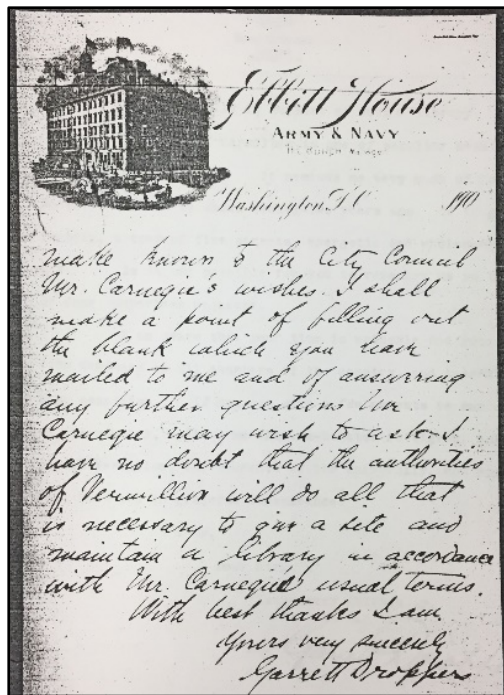 Ebbitt House
ARMY & NAVY
Washington, D.C. 190
make known to the City Council
Mr. Carnegie's wishes. I shall
make a point of filling out
the blank which you have
mailed to me and of answering
any further questions Mr.
Carnegie may wish to ask. I
have no doubt that the authorities
of Vermillion will do all that
is necessary to give a site and
maintain a library in accordance
with Mr. Carnegie's usual terms.
With best thanks I am
Yours very sincerely
Garrett Droppers